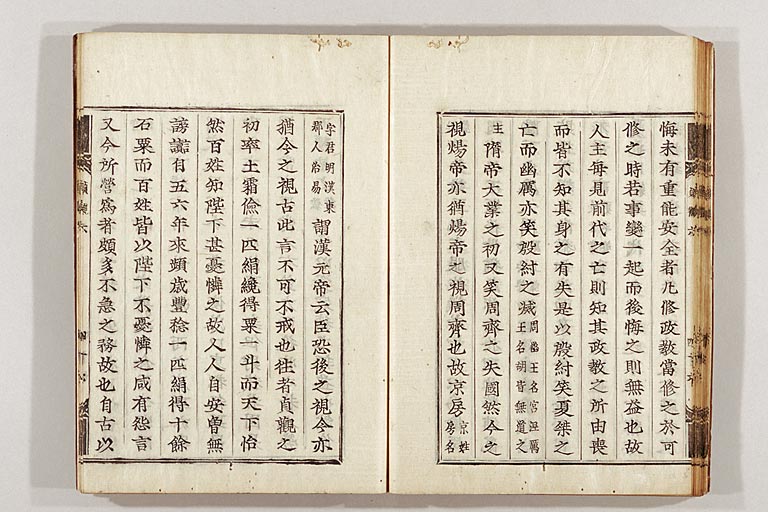 悔未有重能安全者凡修政教當修之於可
修之時若事變一起而後悔之則無益也故
人主每見前代之亡則知其政教之所由喪
而皆不知其身之有失是以殷紂笑夏桀之
亡而幽厲亦笑殷紂之滅周幽王名宮涅厲王名胡皆無道之
主隋帝大業之初又笑周齊之失國然今之
視煬帝亦猶煬帝之視周齊也故京房京姓房名
字君明漢東郡人治易謂漢元帝云臣恐後之視今亦
猶今之視古此言不可不戒也往者貞觀之
初率土霜儉一匹絹纔得粟一斗而天下怡
然百姓知陛下甚憂憐之故人人自安曾無
謗讟自五六年來頻歲豐稔一匹絹得十餘
石粟而百姓皆以陛下不憂憐之咸有怨言
又今所營爲者頗多不急之務故也自古以